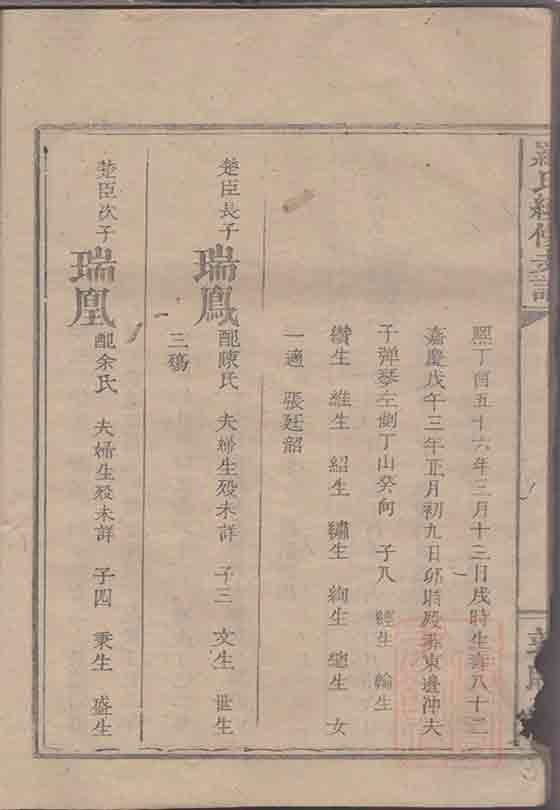 羅氏續修支譜
熙丁酉五十六年三月十三日戌時生壽八十二
嘉慶戊午三年正月初九日卯時歿葬東邊沖夫
子彈琴左側丁山癸向 子八 經生 綸生
纘生 維生 紹生 繡生 絢生 總生 女
一適 張廷韶
楚臣長子 瑞鳳 配陳氏 夫婦生歿未詳 子三 文生 世生
三殤
楚臣次子 瑞凰 配余氏 夫婦生歿未詳 子四 秉生 盛生